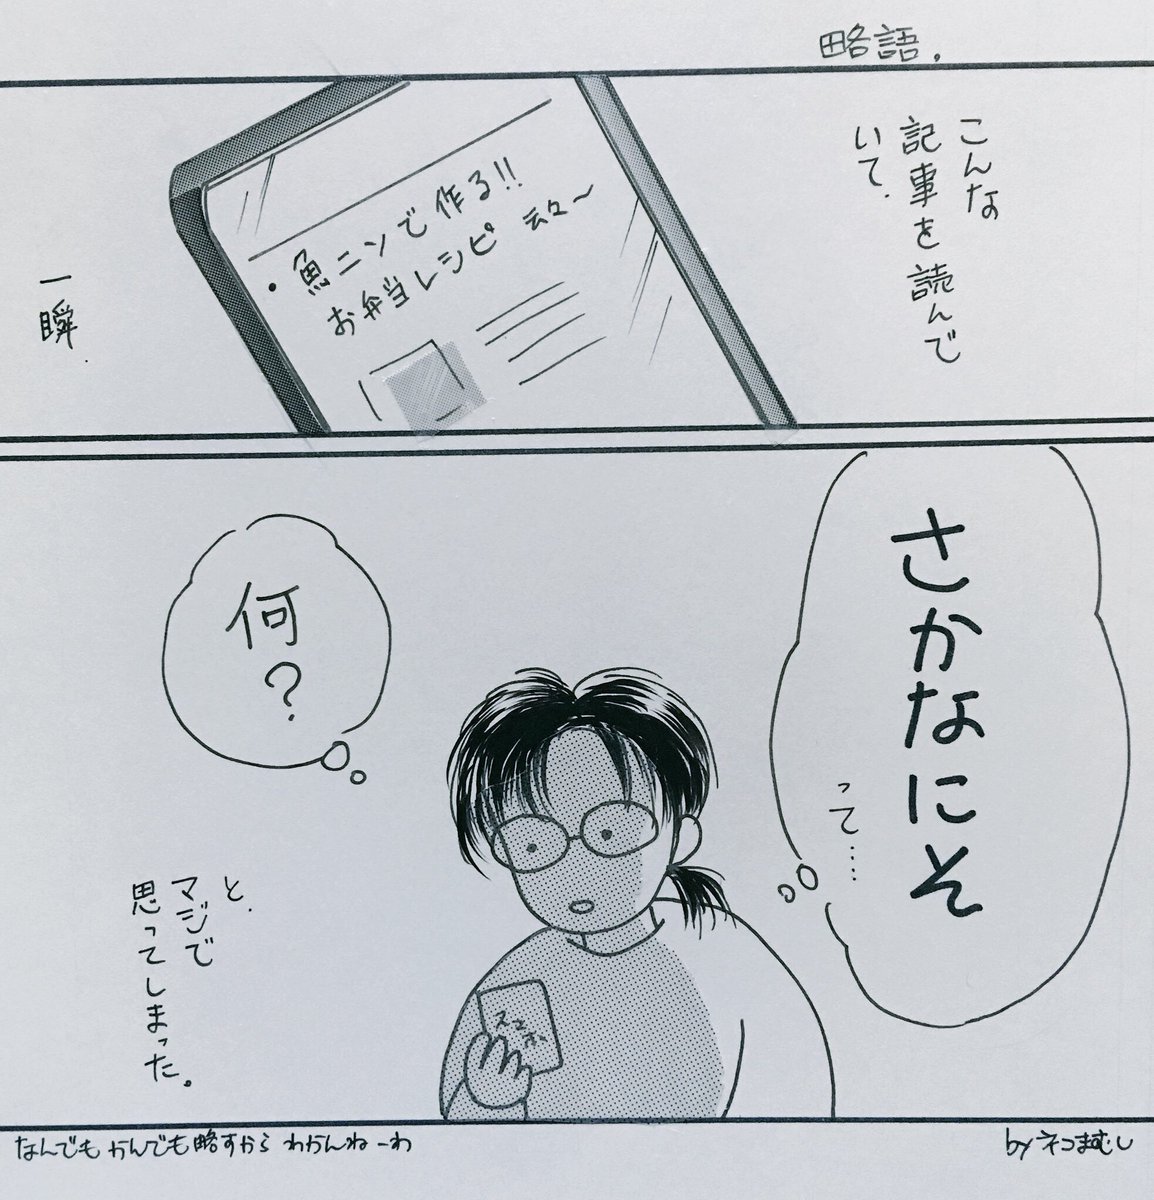 略語。
こんな
記事を読んで
いて、
・魚ニソで作る!!
お弁当レシピ 云々〜
一瞬、
さかなにそ
って……
何?
スマホ
と、
マジで
思ってしまった。
なんでもかんでも略すから わかんねーわ
by ネコまむし